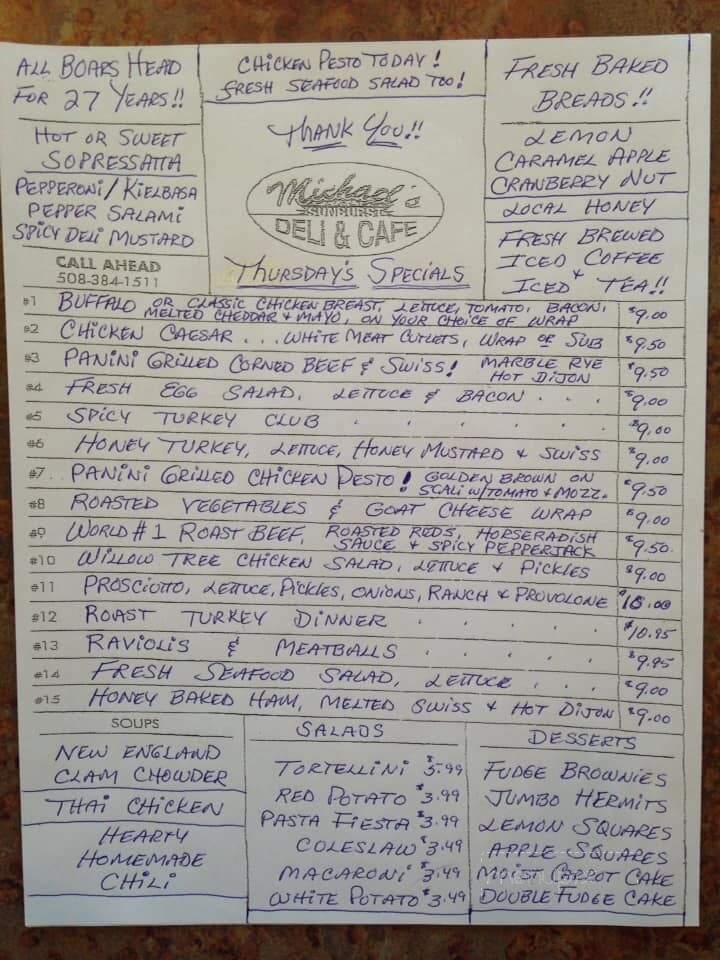 ALL BOARS HEAD
FOR 27 YEARS!!
HOT OR SWEET
SOPRESSATTA
PEPPERONI/KIELBASA
PEPPER SALAMI
SPICY DELI MUSTARD
CALL AHEAD
508-384-1511
CHICKEN PESTO TODAY!
FRESH SEAFOOD SALAD TOO!
THANK YOU!!
Michael's
SUNBURST
DELI & CAFE
THURSDAY'S SPECIALS
FRESH BAKED
BREADS!!
LEMON
CARAMEL APPLE
CRANBERRY NUT
LOCAL HONEY
FRESH BREWED
ICED COFFEE
+
ICED TEA!!
#1 BUFFALO OR CLASSIC CHICKEN BREAST, LETTUCE, TOMATO, BACON,
MELTED CHEDDAR & MAYO, ON YOUR CHOICE OF WRAP $9.00
#2 CHICKEN CAESAR... WHITE MEAT CUTLETS, WRAP OR SUB $9.50
#3 PANINI GRILLED CORNED BEEF & SWISS! MARBLE RYE
HOT DIJON $9.50
#4 FRESH EGG SALAD, LETTUCE & BACON . . . $9.00
#5 SPICY TURKEY CLUB . . . . . . $9.00
#6 HONEY TURKEY, LETTUCE, HONEY MUSTARD & SWISS $9.00
#7 PANINI GRILLED CHICKEN PESTO! GOLDEN BROWN ON
SCALI W/TOMATO & MOZZ. $9.50
#8 ROASTED VEGETABLES & GOAT CHEESE WRAP $9.00
#9 WORLD #1 ROAST BEEF, ROASTED REDS, HORSERADISH
SAUCE & SPICY PEPPERJACK $9.50
#10 WILLOW TREE CHICKEN SALAD, LETTUCE & PICKLES $9.00
#11 PROSCIOTTO, LETTUCE, PICKLES, ONIONS, RANCH & PROVOLONE $10.00
#12 ROAST TURKEY DINNER . . . . . $10.95
#13 RAVIOLIS & MEATBALLS . . . . . $9.95
#14 FRESH SEAFOOD SALAD, LETTUCE . . . $9.00
#15 HONEY BAKED HAM, MELTED SWISS & HOT DIJON $9.00
SOUPS
NEW ENGLAND
CLAM CHOWDER
THAI CHICKEN
HEARTY
HOMEMADE
CHILI
SALADS
TORTELLINI $5.99
RED POTATO $3.99
PASTA FIESTA $3.99
COLESLAW $3.49
MACARONI $3.49
WHITE POTATO $3.49
DESSERTS
FUDGE BROWNIES
JUMBO HERMITS
LEMON SQUARES
APPLE SQUARES
MOIST CARROT CAKE
DOUBLE FUDGE CAKE